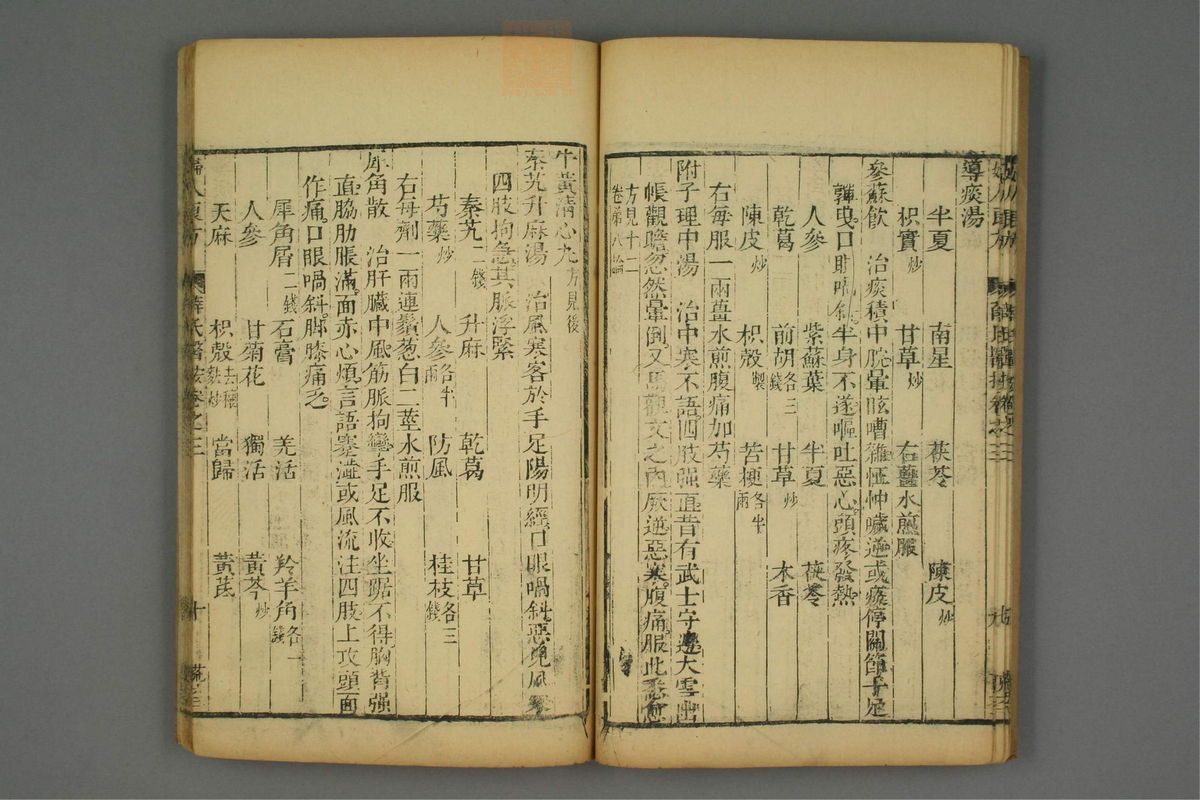 導痰湯
半夏 南星 茯苓 陳皮炒
枳實炒 甘草炒 右薑水煎服
參蘇飲 治痰積中脘暈眩嘈雜怔忡噦逆或痰停關節手足
嚲曳口眼喎斜半身不遂嘔吐惡心頭疼發熱
人參 紫蘇葉 半夏 茯苓
乾葛 前胡各三錢 甘草炒 木香
陳皮炒 枳殼製 苦梗各半兩
右每服一兩薑水煎腹痛加芍藥
附子理中湯 治中寒不語四肢强直昔有武士守邊大雪出
帳觀瞻忽然暈倒又馬觀文之内厥逆惡寒腹痛服此悉愈
方見十二卷第八論
牛黃清心丸方見後
秦艽升麻湯 治風寒客於手足陽明經口眼喎斜惡見風寒
四肢拘急其脉浮緊
秦艽二錢 升麻 乾葛 甘草
芍藥炒 人參各半兩 防風 桂枝各三錢
右每劑一兩連鬚葱白二莖水煎服
犀角散 治肝臟中風筋脈拘攣手足不收坐踞不得胸背强
直脇肋脹滿面赤心煩言語蹇澁或風流注四肢上攻頭面
作痛口眼喎斜脚膝痛乏
犀角屑二錢 石膏 羌活 羚羊角各一錢
人參 甘菊花 獨活 黃芩炒
天麻 枳殼去穰麩炒 當歸 黃芪
婦人良方 薛氏醫按卷之三 十